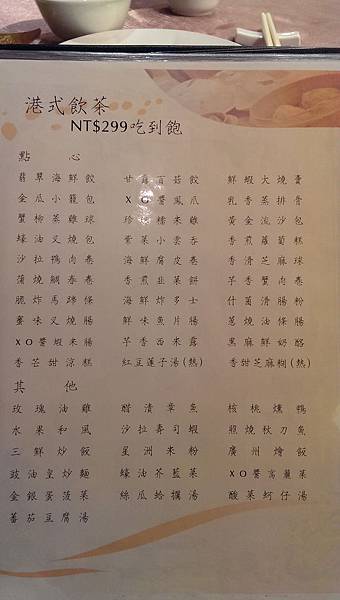 港式飲茶
NT$299吃到飽
點心
翡翠海鮮餃 甘露百菇餃 鮮蝦大燒賣
金瓜小籠包 XO醬鳳爪 乳香蒸排骨
蟹柳蒸雞球 珍珠糯米雞 黃金流沙包
蠔油叉燒包 紫菜小雲吞 香煎蘿蔔糕
沙拉鴨肉卷 海鮮腐皮卷 香滑芝麻球
蒲燒鯛春卷 香煎韭菜餅 芋香蟹肉卷
脆炸馬蹄條 海鮮炸多士 什菌滑腸粉
蜜味叉燒腸 鮮味魚片腸 蔥燒油條腸
XO醬蝦米腸 芋香西米露 黑麻鮮奶酪
香芒甜涼糕 紅豆蓮子湯(熱) 香甜芝麻糊(熱)
其他
玫瑰油雞 醋漬章魚 核桃燻鴨
水果和風 沙拉壽司蝦 煎燒秋刀魚
三鮮炒飯 星洲米粉 廣州燴飯
豉油皇炒麵 蠔油芥藍菜 XO醬高麗菜
金銀蛋菠菜 絲瓜蛤蠣湯 酸菜蚵仔湯
蕃茄豆腐湯